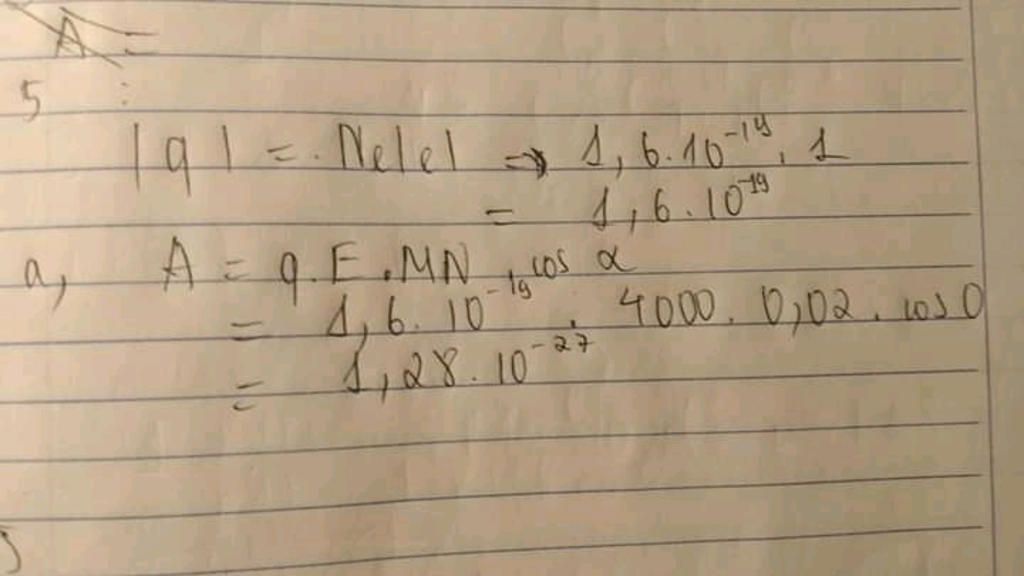 A =
5 :
|q| = . Ne|e| => 1,6.10^-19 . 1
= 1,6.10^-19
a, A = q.E.MN . cos α
= 1,6.10^-19 . 4000. 0,02. cos 0
= 1,28.10^-27